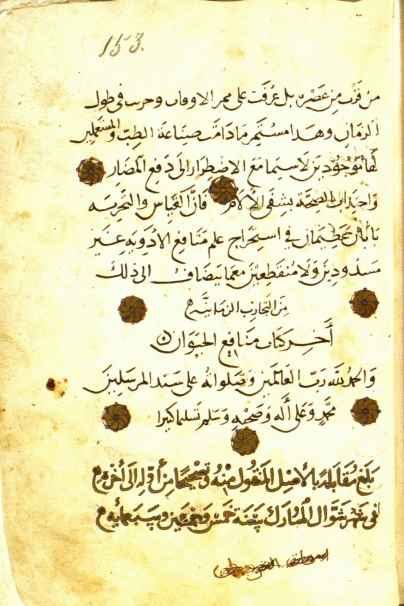 153.
من قرب من عصره بل عرفت على ممر الاوقات وحربت في طول
الزمان وهذا مستمر مادامت صناعة الطب والمستعملين
لها موجودين لاسيما مع الاضطرار الى دفع المضار
واجتذاب الصحة بشفي الالام فان القياس والتجربة
بابان عظيمان في استخراج علم منافع الادوية غير
مسدودين ولا منقطعين مع ما يضاف الى ذلك
من التجارب الزمانية
آخر كتاب منافع الحيوان
والحمد لله رب العالمين وصلواته على سيد المرسلين
محمد وعلى آله وصحبه وسلم تسليما كثيرا
بلغ مقابلة بالاصل المنقول منه وتصحيحا من أوله الى آخره
في شهر شوال المبارك سنة خمس وخمسين وسبعمايه